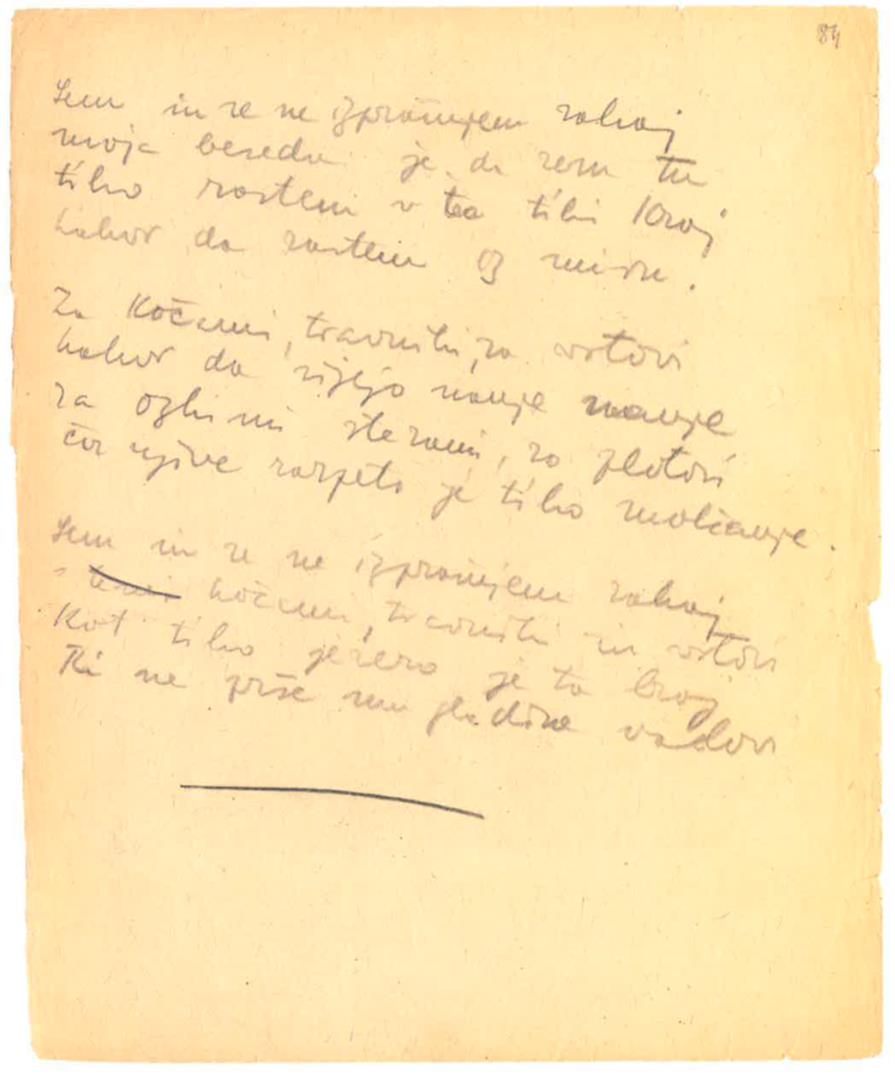 84
Sem in se ne izprašujem zakaj
moja beseda je da sem tu
tiho rastem v ta tihi kraj
kakor da rastem iz miru.
Za kočami, travniki, za vrtovi
kakor da nanje nanje
za ozkimi stezami, za plotovi
razpeto je tiho molčanje.
Sem in se ne izprašujem zakaj
kočami, travniki in vrtovi
Kot tiho jezero je ta kraj
Ki ne mu gladine valovi